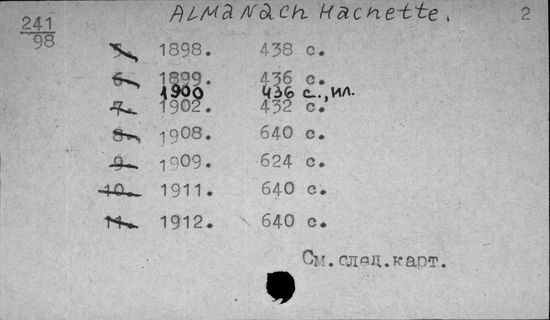 ALMaNach Hachette.
2
241
98
5. 1898. 438 с.
6. 1899. 436 с.
1900 436 с., ил.
7. 1902. 432 с.
8. 1908. 640 с.
9. 1909. 624 с.
10. 1911. 640 с.
11. 1912. 640 с.
См.след.карт.